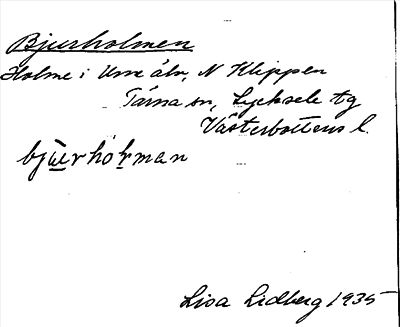 Bjurholmen
Holme i Ume älv, N Klippen
Tärna sn, Lycksele tg
Västerbottens l.
bju̲rhół̲man
Lisa Lidberg 1935